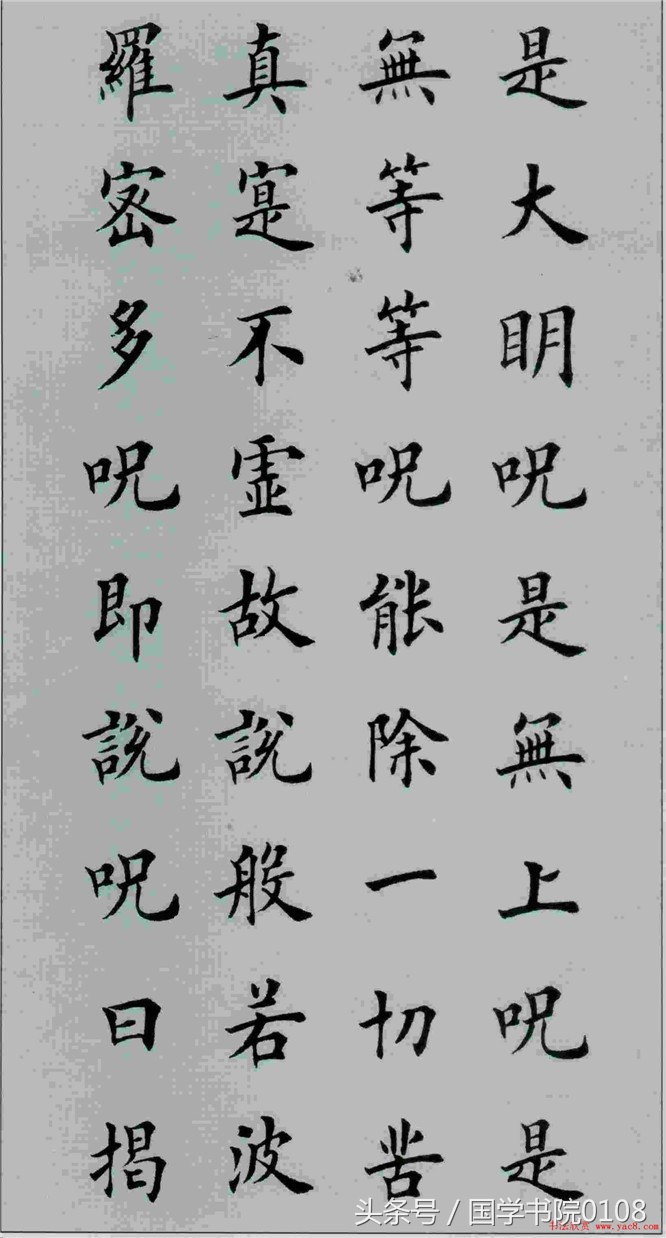 是大明呪是無上呪是
無等等呪能除一切苦
真寔不虛故說般若波
羅密多呪即說呪曰揭
头条号 / 国学书院0108
书法欣赏 www.yac8.com